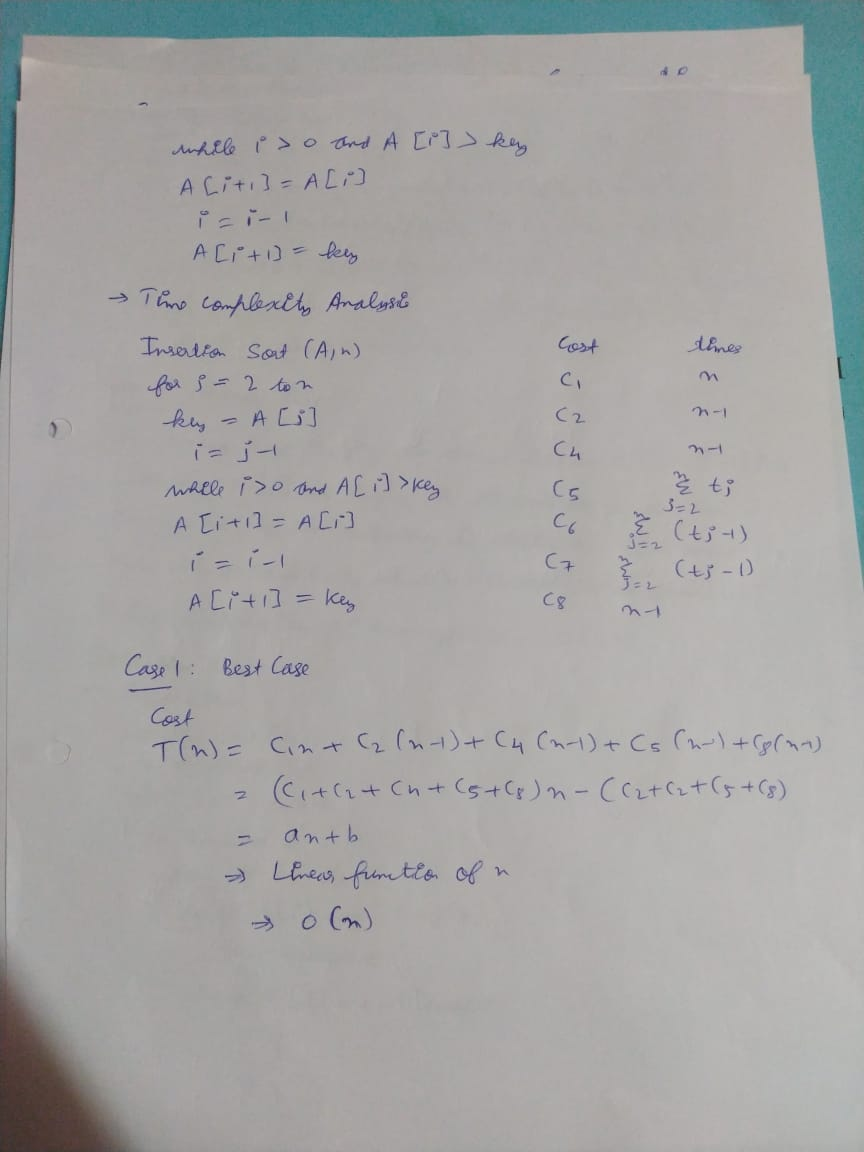 while i > 0 and A [i] > key
A [i+1] = A[i]
i = i-1
A [i+1] = key
→ Time Complexity Analysis
Insertion Sort (A,n) Cost times
for j = 2 to n C1 n
key = A [j] C2 n-1
i = j-1 C4 n-1
while i>0 and A[i] >key C5 n Σ j=2 tj
A [i+1] = A[i] C6 n Σ j=2 (tj-1)
i = i-1 C7 n Σ j=2 (tj-1)
A [i+1] = key C8 n-1
Case 1: Best Case
Cost
T(n) = C1n + C2 (n-1) + C4 (n-1) + C5 (n-1) + C8(n-1)
= (C1+C2+C4+C5+C8)n - (C2+C2+C5+C8)
= an+b
⇒ Linear function of n
⇒ O(n)